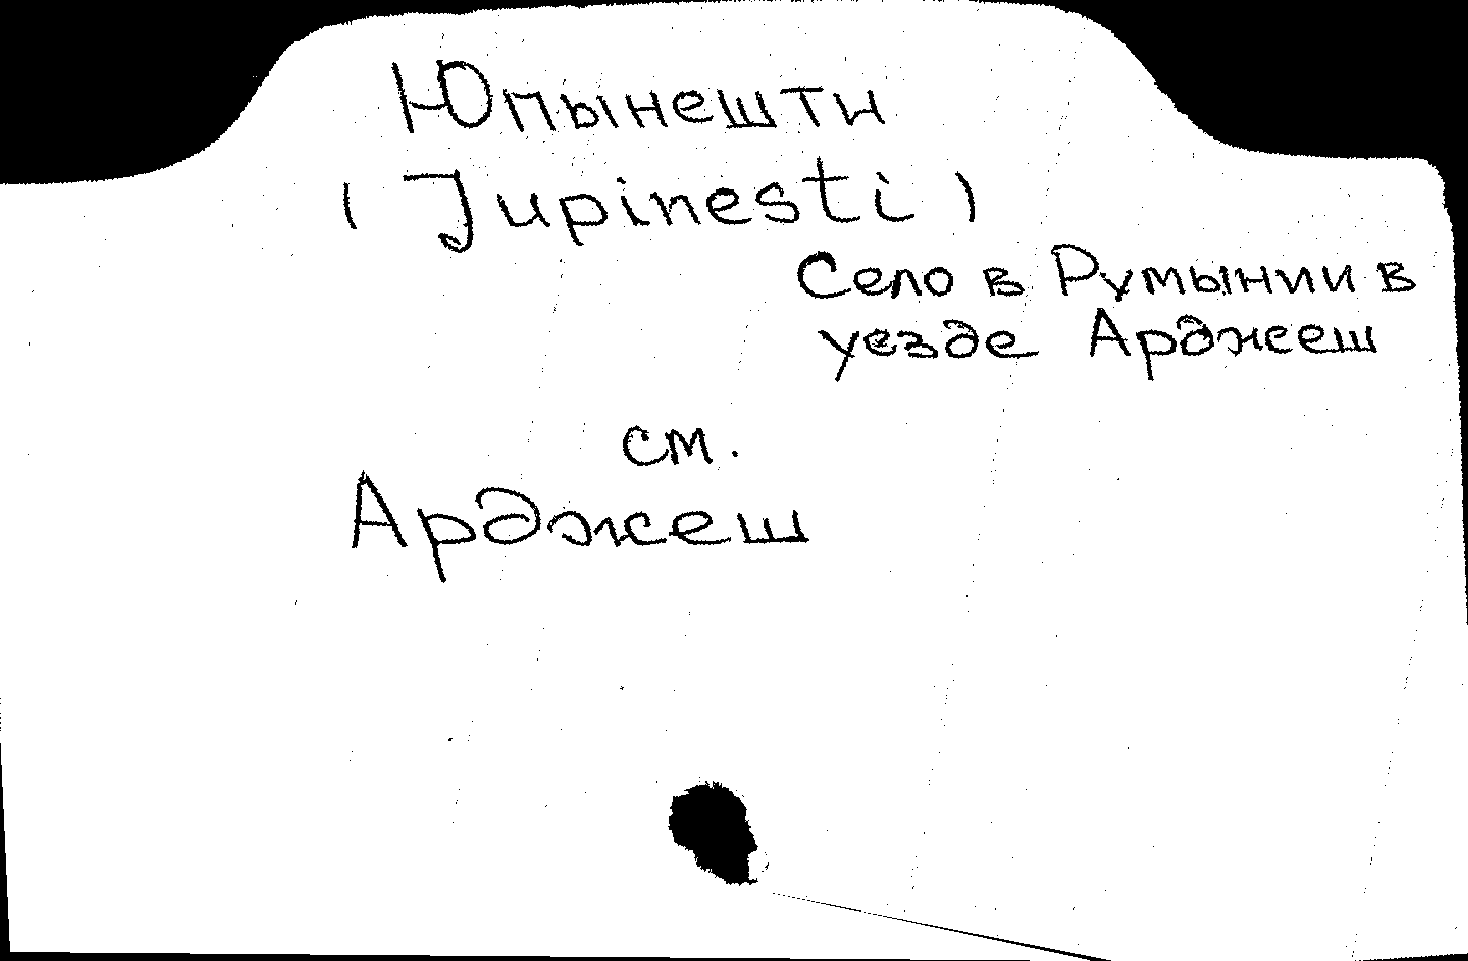 Юпынешти
(Jupinesti)
Село в Румынии в
уезде Арджеш
см.
Арджеш